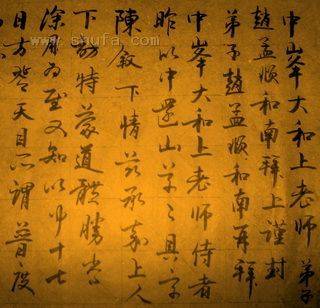 中峯大和上老師 弟子
趙孟頫和南拜上謹封
弟子趙孟頫和南再拜
中峯大和上老師侍者
昨以中還山草々具字
陳敘下情茲承上人
下訪特蒙道體勝常
深用為慰又知以中十七
日方登天目所謂普度